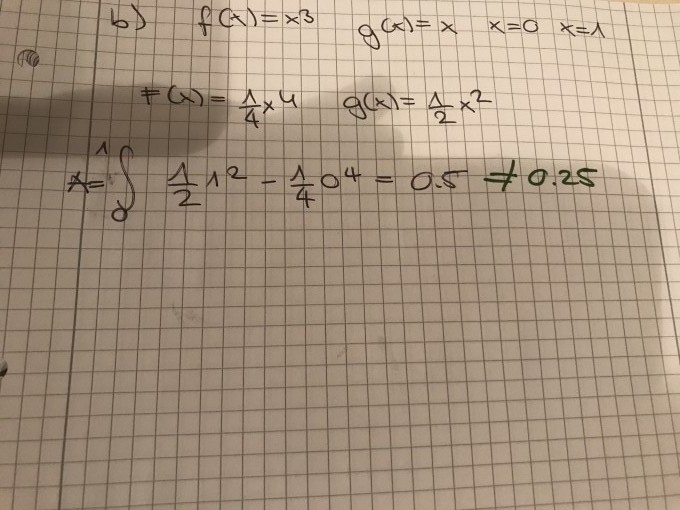 b) f(x)=x³ g(x)=x x=0 x=1
F(x)= 1/4 x⁴ g(x)= 1/2 x²
A= ¹∫₀ 1/2 1² - 1/4 0⁴ = 0.5 ≠ 0.25